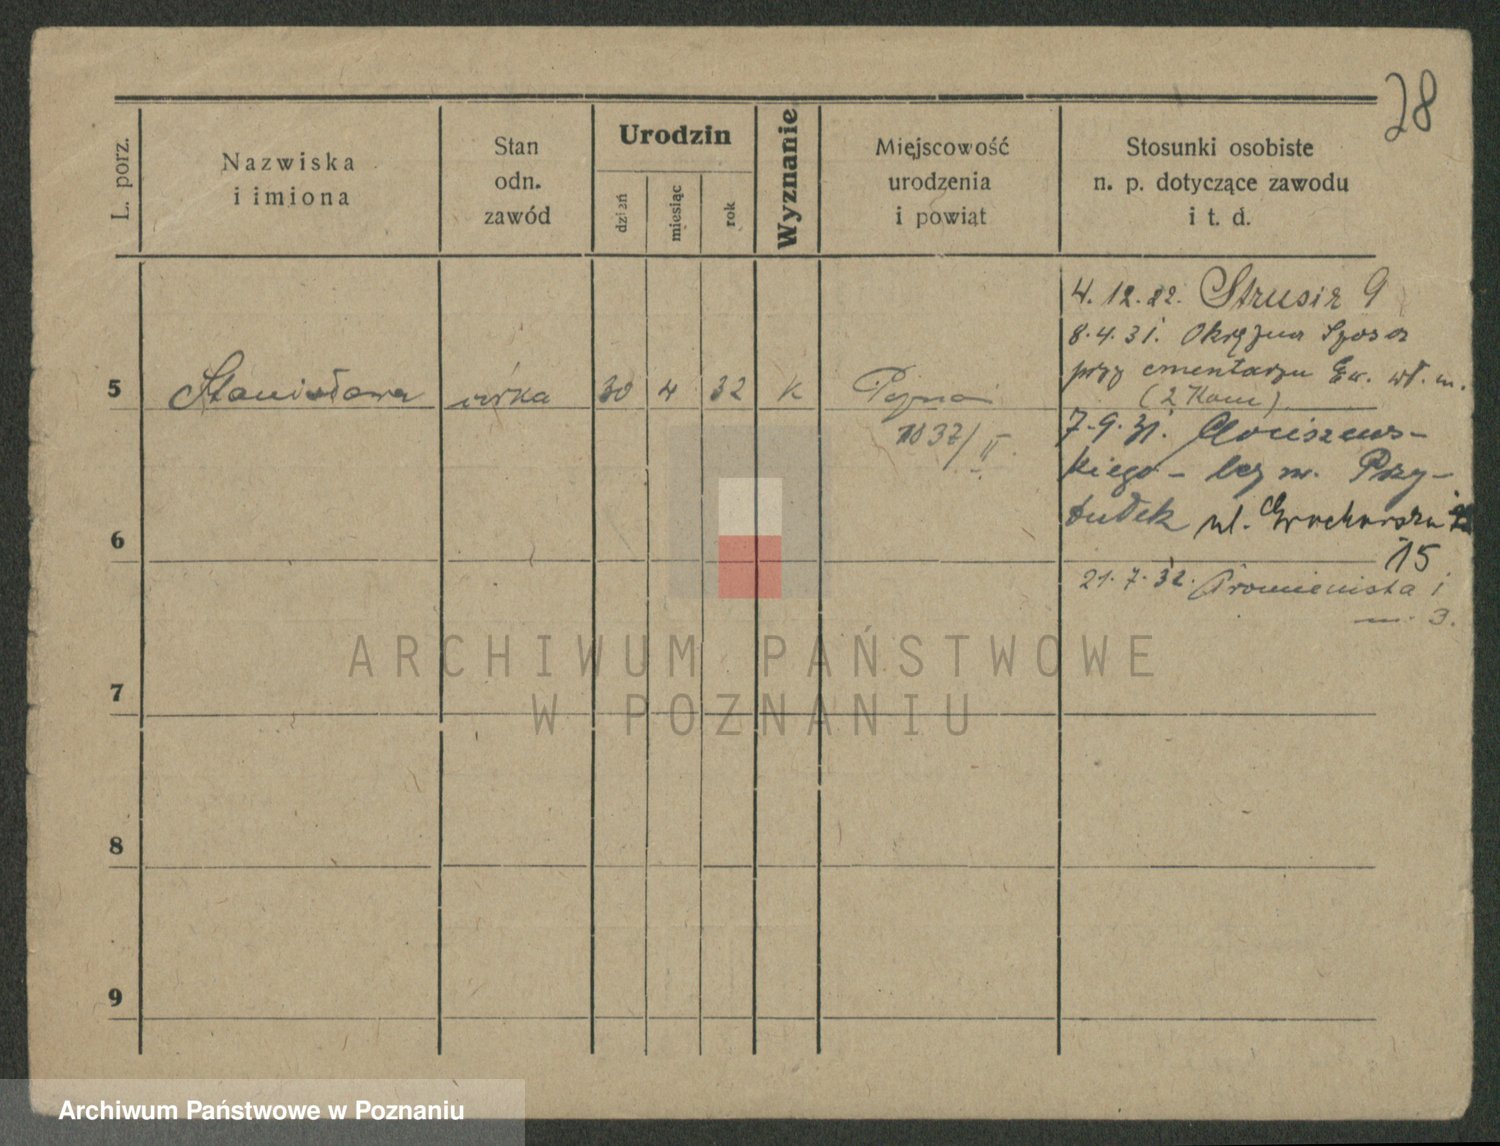 28
L. porz.
Nazwiska
i imiona
Stan
odn.
zawód
Urodzin
dzień
miesiąc
rok
Wyznanie
Miejscowość
urodzenia
i powiat
Stosunki osobiste
n. p. dotyczące zawodu
i t. d.
4. 12. 22. Strusia 9
8. 4. 31. Okrężna Szosa
przy cmentarzu Ew. wł. m.
(2 Kom)
5 Stanisława córka 30 4 32 k Poznań
1037/II.
7. 9. 31.
kiego - bez m. Przy-
tułek ul. Grochowska
6
15
21. 7. 32. Promienista 1
m. 3.
7
8
9
ARCHIWUM PAŃSTWOWE
W POZNANIU
Archiwum Państwowe w Poznaniu